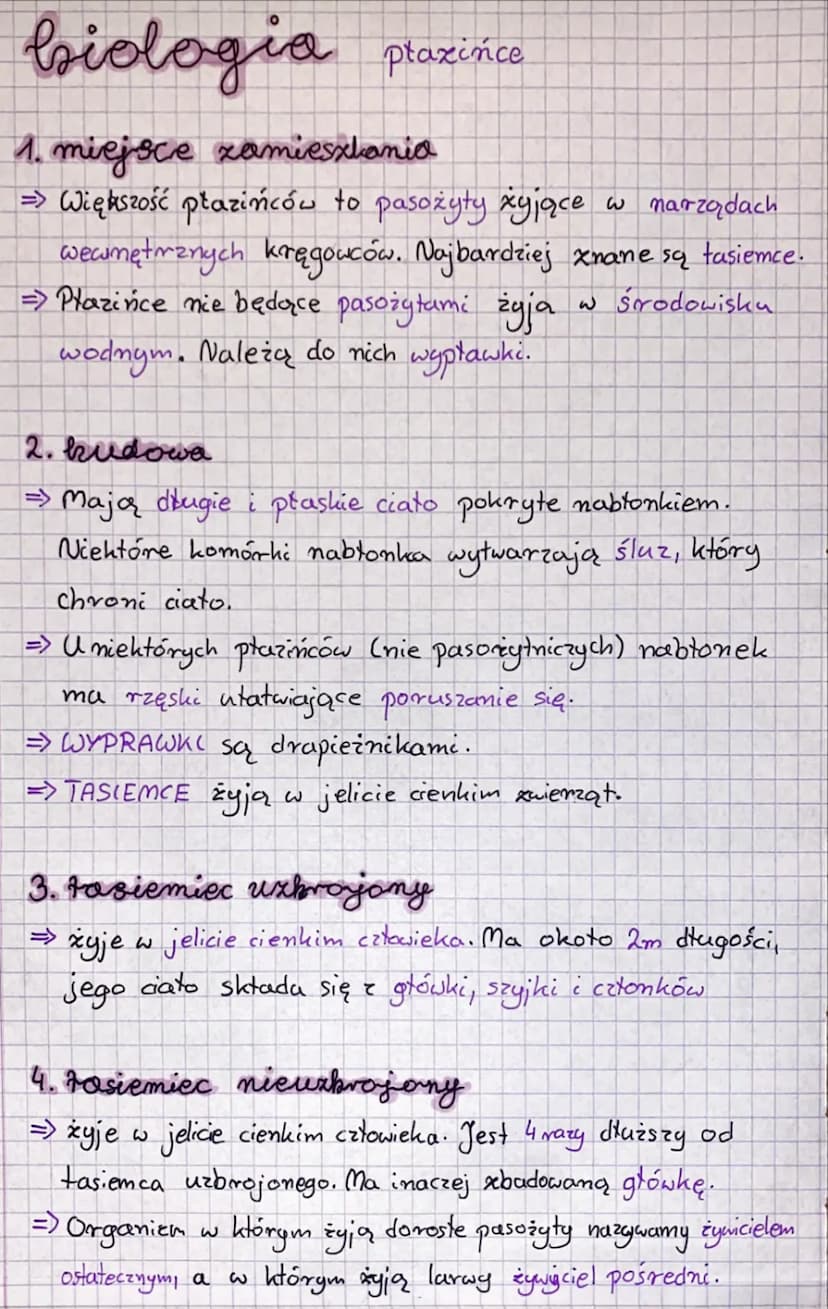 biologia płazińce
1. miejsce zamieszkania
⇒ Większość płazińców to pasożyty żyjące w narządach
wewnętrznych kręgowców. Najbardziej znane są tasiemce.
⇒ Płazińce nie będące pasożytami żyją w środowisku
wodnym. Należą do nich wypławki.
2. budowa
⇒ Mają długie i płaskie ciało pokryte nabłonkiem.
Niektóre komórki nabłonka wytwarzają śluz, który
chroni ciało.
⇒ U niektórych płazińców (nie pasożytniczych) nabłonek
ma rzęski ułatwiające poruszanie się.
⇒ WYPRAWKI są drapieżnikami.
⇒ TASIEMCE żyją w jelicie cienkim zwierząt.
3. tasiemiec uzbrojony
⇒ żyje w jelicie cienkim człowieka. Ma około 2m długości,
jego ciało składa się z główki, szyjki i członków
4. tasiemiec nieuzbrojony
⇒ żyje w jelicie cienkim człowieka. Jest 4 razy dłuższy od
tasiemca uzbrojonego. Ma inaczej zbudowaną główkę.
⇒ Organizm w którym żyją dorosłe pasożyty nazywamy żywicielem
ostatecznym, a w którym żyją larwy żywiciel pośredni.